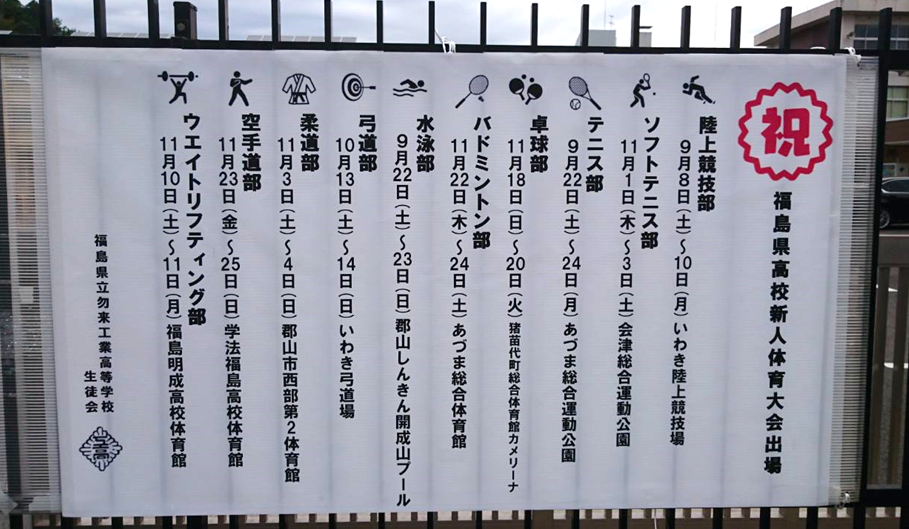 祝
福島県高校新人体育大会出場
陸上競技部
9月8日(土)～10日(月)いわき陸上競技場
ソフトテニス部
11月1日(木)～3日(土)会津総合運動公園
テニス部
9月22日(土)～24日(月)あづま総合運動公園
卓球部
11月18日(日)～20日(火)猪苗代町総合体育館カメリーナ
バドミントン部
11月22日(木)～24日(土)あづま総合体育館
水泳部
9月22日(土)～23日(日)郡山しんきん開成山プール
弓道部
10月13日(土)～14日(日)いわき弓道場
柔道部
11月3日(土)～4日(日)郡山市西部第2体育館
空手道部
11月23日(金)～25日(日)学法福島高校体育館
ウエイトリフティング部
11月10日(土)～11日(月)福島明成高校体育館
福島県立勿来工業高等学校
生徒会